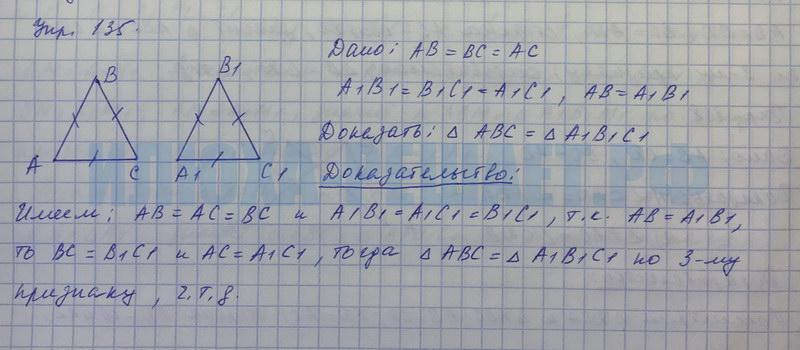 Упр. 135.
Дано: AB = BC = AC
A1B1 = B1C1 = A1C1, AB = A1B1
Доказать: △ ABC = △ A1B1C1
Доказательство:
B
A
C
B1
A1
C1
Имеем: AB = AC = BC и A1B1 = A1C1 = B1C1, т.к. AB = A1B1,
то BC = B1C1 и AC = A1C1, тогда △ ABC = △ A1B1C1 по 3-му
признаку, ч.т.д.